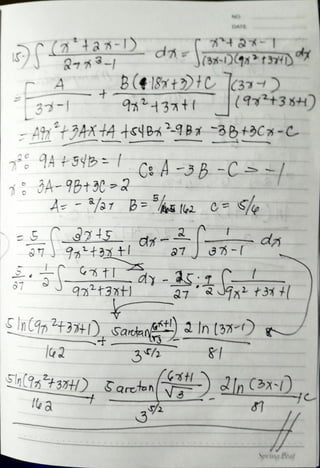 NO
DATE
15.) ∫ (x²+2x-1) / 27x³-1 dx = ∫ x²+2x-1 / (3x-1)(9x²+3x+1) dx
= [ A / 3x-1 + B(18x+3)+C / 9x²+3x+1 ] (3x-1) (9x²+3x+1)
= A9x²+3Ax+A+54Bx²-9Bx-3B+3Cx-C
x²: 9A+54B=1 C: A-3B-C=-1
x: 3A-9B+3C=2
A= -2/27 B= 5/162 C= 5/6
= 5/27 ∫ 3x+5 / 9x²+3x+1 dx - 2/27 ∫ 1 / 3x-1 dx
5/27 · 1/2 ∫ 6x+1 / 9x²+3x+1 dx - 25/27 · 9/2 ∫ 1 / 9x²+3x+1
5 ln(9x²+3x+1) / 162 + 5 arctan(6x+1/√3) / 3^5/2 - 2 ln(3x-1) / 81
5 ln(9x²+3x+1) / 162 + 5 arctan(6x+1/√3) / 3^5/2 - 2 ln(3x-1) / 81 + C
Spring Leaf